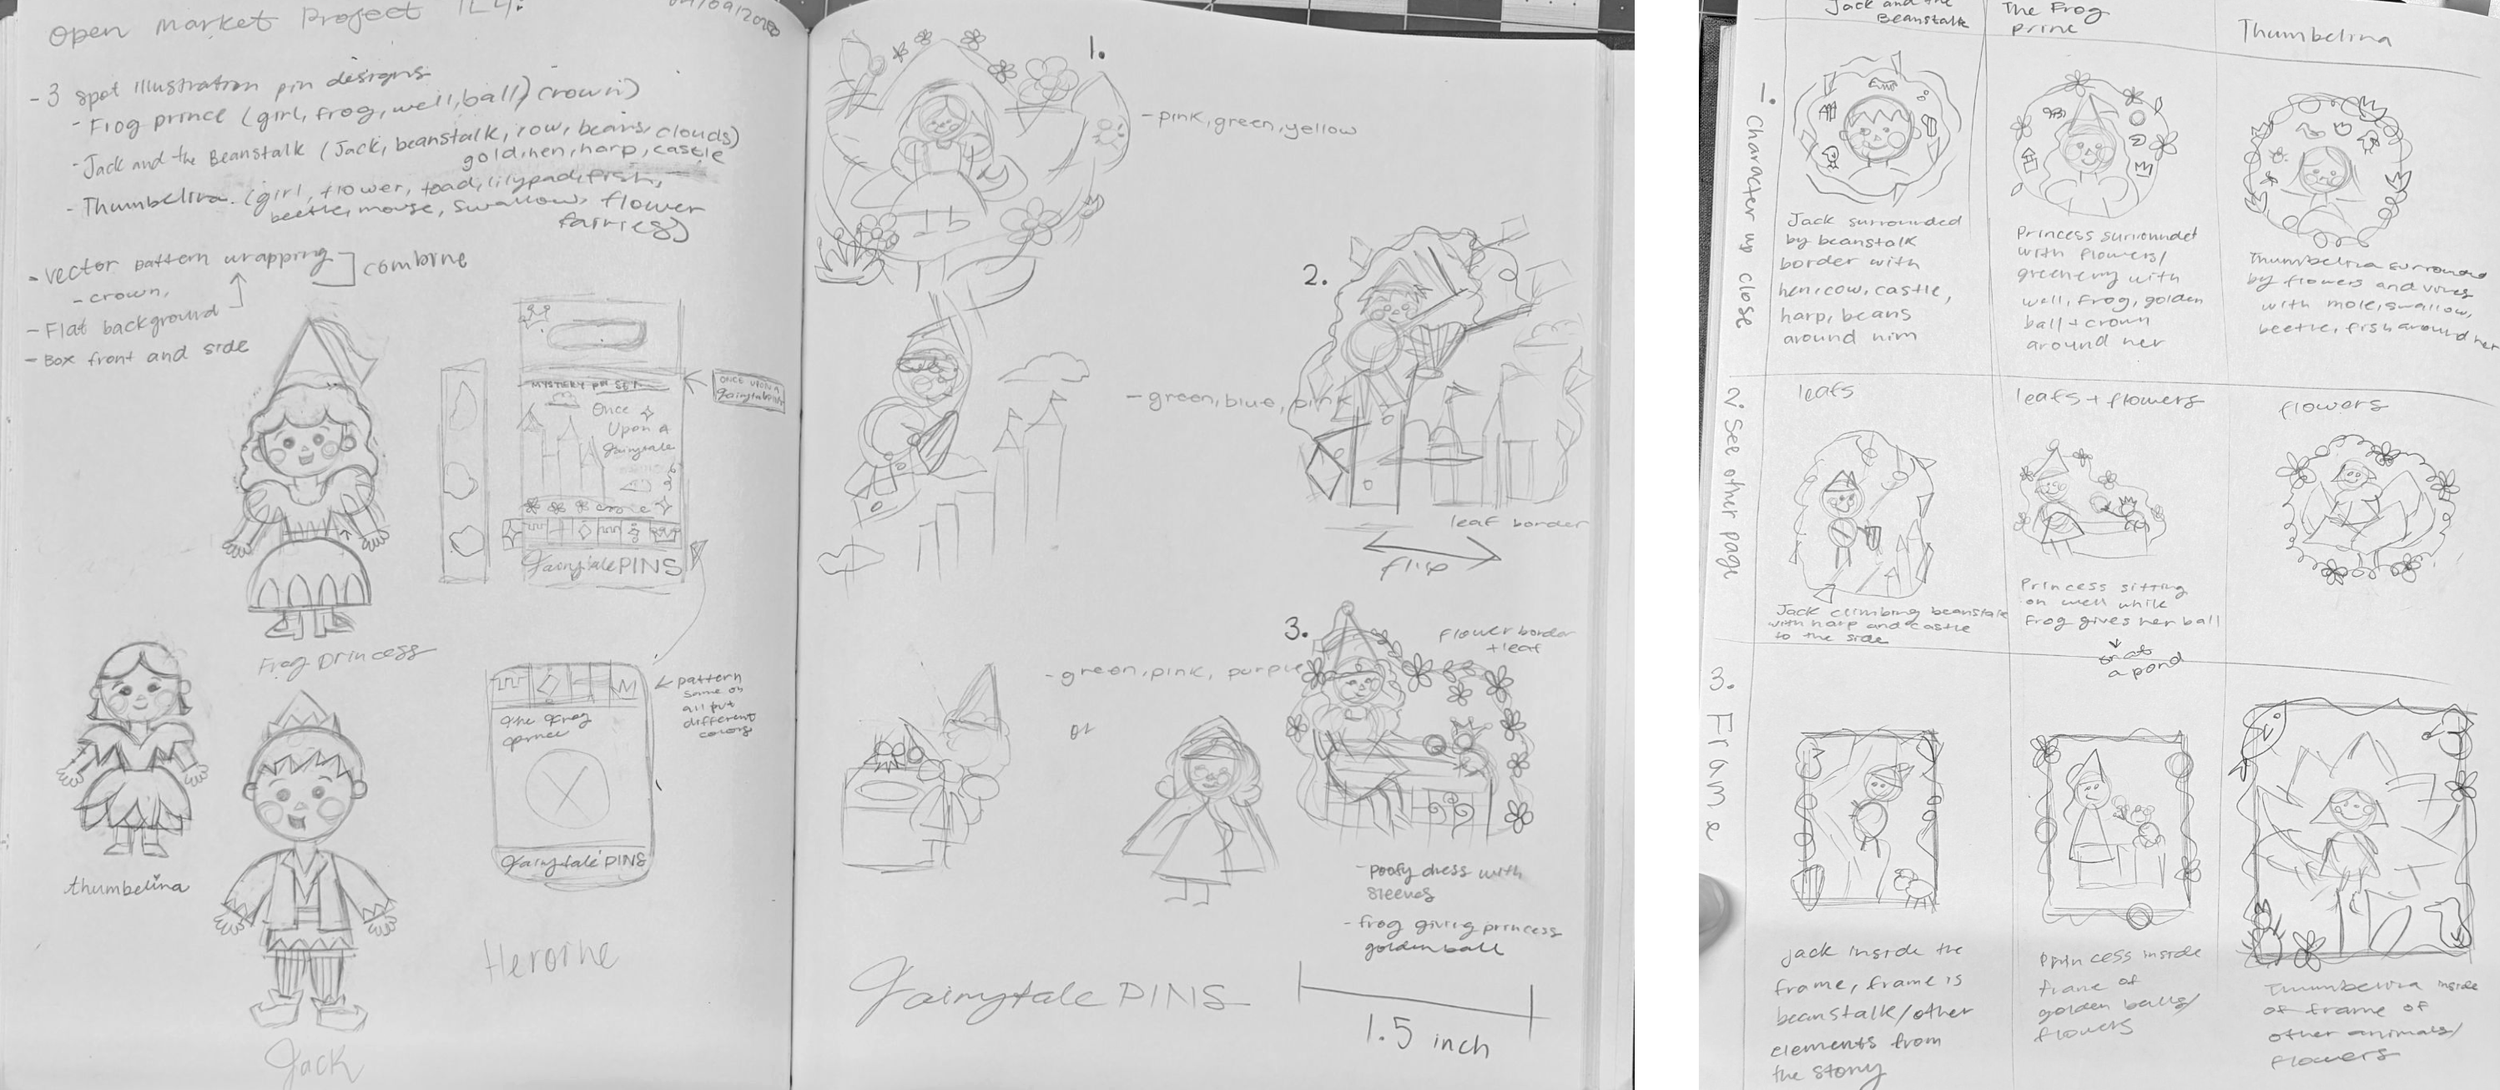 Open Market Project IL4:
04/09/2020
- 3 spot illustration pin designs
- Frog prince (girl, frog, well, ball, crown)
- Jack and the Beanstalk (Jack, beanstalk, cow, beans, clouds)
gold, hen, harp, castle
- Thumbelina (girl, flower, toad, lilypad, fish,
beetle, mouse, swallow, flower
fairies)
- vector pattern wrapping
combine
- crown,
- Flat background
- Box front and side
MYSTERY PIN SET
ONCE UPON A
fairytale
Once
Upon A
fairytale
Fairytale PINS
Frog princess
thumbelina
Jack
the Frog
prince
Fairytale PINS
pattern
same on
all but
different
colors
Heroine
1.
- pink, green, yellow
2.
- green, blue, pink
leaf border
flip
3.
flower border
+ leaf
- green, pink, purple
or
- poofy dress with
sleeves
- frog giving princess
golden ball
Fairytale PINS
1.5 inch
Jack and the
Beanstalk
The Frog
prine
Thumbelina
1. Character up close
Jack surrounded
by beanstalk
border with
hen, cow, castle,
harp, beans
around him
Princess surroundet
with flowers/
greenery with
well, frog, golden
ball + crown
around her
Thumbelina surrounded
by flowers and vines
with mole, swallow,
beetle, fish around her
2. See other page
leafs
leafs + flowers
flowers
Jack climbing beanstalk
with harp and castle
to the side
Princess sitting
on well while
Frog gives her ball
or at
a pond
3. Frame
Jack inside the
frame, frame is
beanstalk/other
elements from
the story
Princess inside
frame of
golden balls/
flowers
Thumbelina inside
of frame of
other animals/
flowers